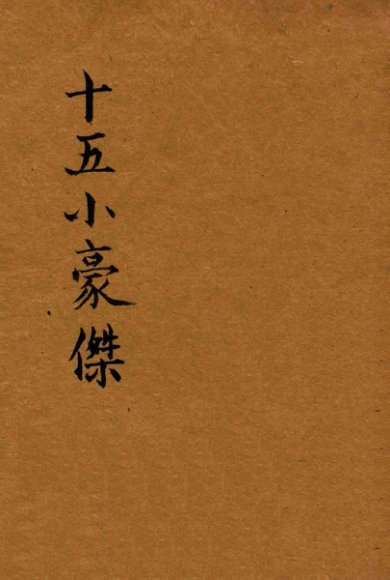 十五小豪傑